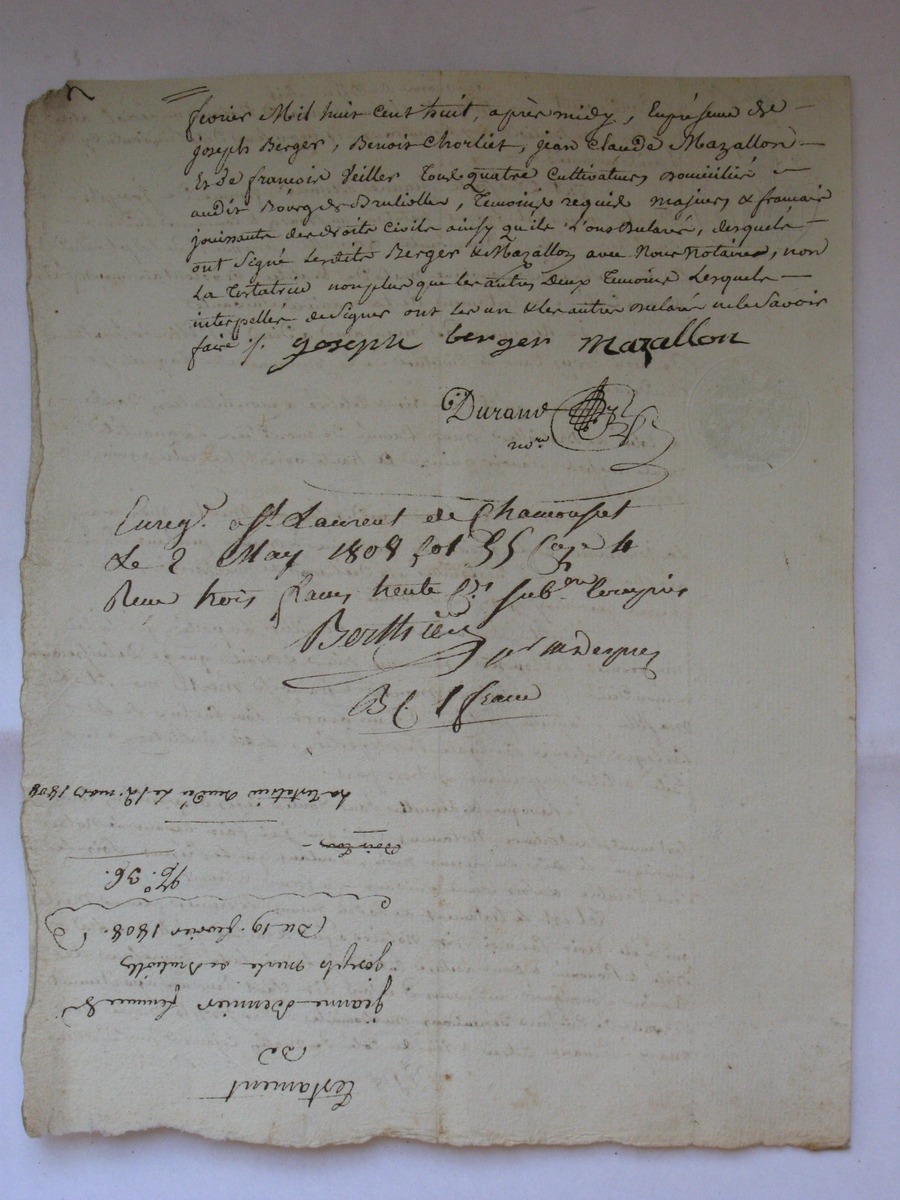 fevrier Mil huit cent huit, après midy, En présence de
joseph Berger, Benoit Chorliet, jean Claude Mazallon
Et de francois Veiller Tous quatre Cultivateurs domiciliés
audit Bourg de Brullolles, Temoins requis majeurs & francais
jouissants des droits Civils ainsy qu'ils L'ont declaré, desquels
ont Signé Lesdits Berger & Mazallon avec Nous Notaire, non
La Testatrice non plus que les autres deux Temoins Lesquels
interpellés de Signer ont Les un & les autres declaré ne le Savoir
faire ./. joseph berger mazallon
Durand
nore
Enregt. a St. Laurent de Chamousset
Le 2 May 1808 fol 55 Case 4
Recu trois francs trente Ces subon Comprise
Berthieu
B C 1 franc
Testament
De
jeanne Bennier femme de
joseph merle de Brullolles
(Du 19. fevrier 1808.)
No. 36.
La Testatrice décédée Le 12. mars 1808